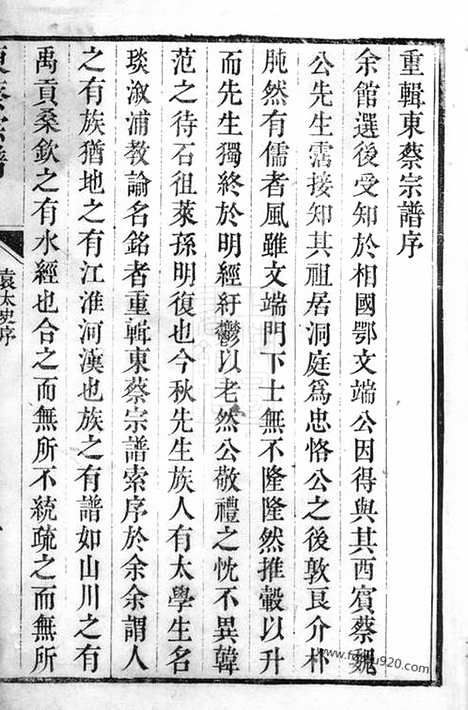 重輯東蔡宗譜序
余館選後受知於相國鄂文端公因得與其西賓蔡魏
公先生霑接知其祖居洞庭為忠恪公之後敦艮介朴
肫然有儒者風雖文端門下士無不隆隆然推轂以升
而先生獨終於明經紆鬱以老然公敬禮之恍不異韓
范之待石徂萊孫明復也今秋先生族人有太學生名
琰漵浦教諭名銘者重輯東蔡宗譜索序於余余謂人
之有族猶地之有江淮河漢也族之有譜如山川之有
禹貢桑欽之有水經也合之而無所不統疏之而無所
東蔡宗譜
袁太史序
www.fopu920.com